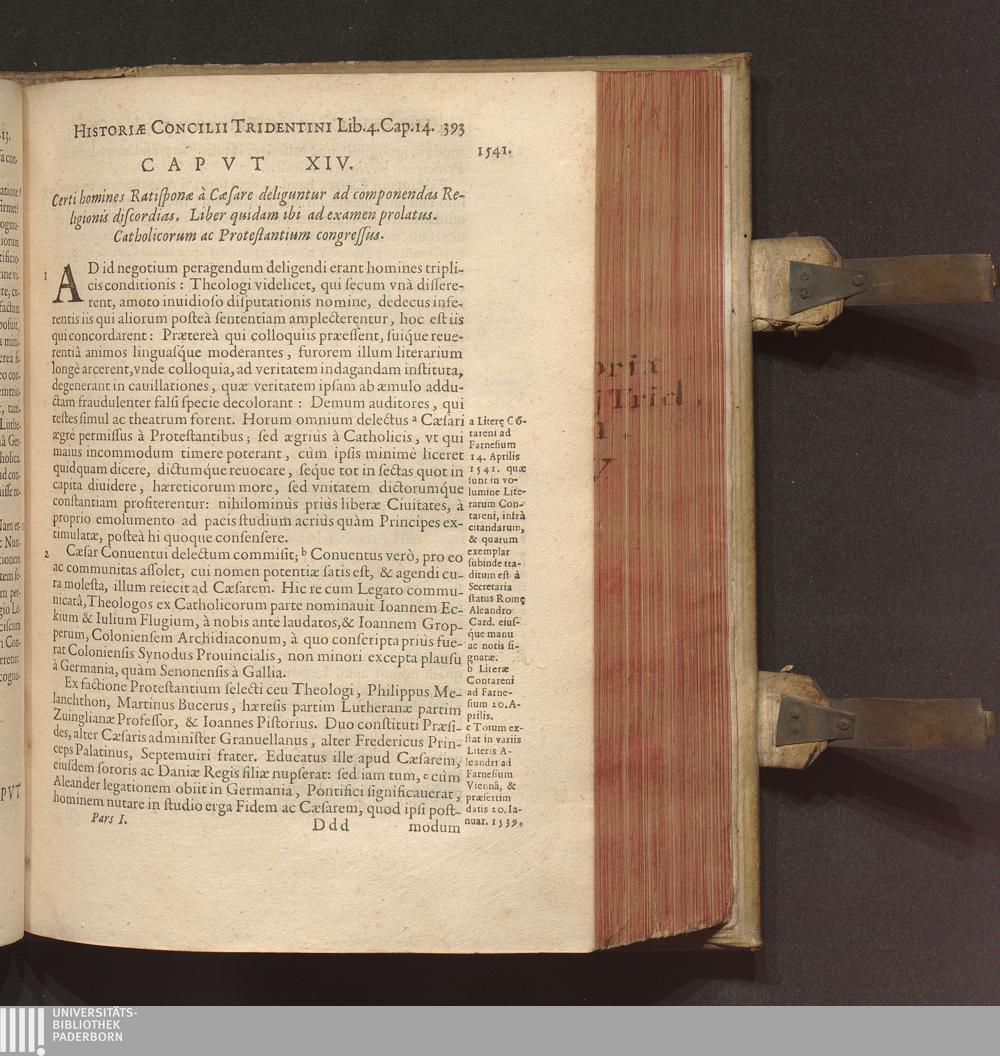 HISTORIÆ CONCILII TRIDENTINI Lib.4.Cap.14. 393
1541.
CAPVT XIV.
Certi homines Ratisponæ à Cæsare deliguntur ad componendas Re-
ligionis discordias. Liber quidam ibi ad examen prolatus.
Catholicorum ac Protestantium congressus.
1 AD id negotium peragendum deligendi erant homines tripli-
cis conditionis : Theologi videlicet, qui secum vnà dissere-
rent, amoto inuidioso disputationis nomine, dedecus infe-
rentis iis qui aliorum posteà sententiam amplecterentur, hoc est iis
qui concordarent : Prætereà qui colloquiis præessent, suique reue-
rentiâ animos linguasque moderantes, furorem illum literarium
longè arcerent, vnde colloquia, ad veritatem indagandam instituta,
degenerant in cauillationes, quæ veritatem ipsam ab æmulo addu-
ctam fraudulenter falsi specie decolorant : Demum auditores, qui
testes simul ac theatrum forent. Horum omnium delectus ª Cæsari
ægrè permissus à Protestantibus ; sed ægriùs à Catholicis, vt qui
maius incommodum timere poterant, cùm ipsis minimè liceret
quidquam dicere, dictumque reuocare, seque tot in sectas quot in
capita diuidere, hæreticorum more, sed vnitatem dictorumque
constantiam profiterentur : nihilominùs priùs liberæ Ciuitates, à
proprio emolumento ad pacis studium acriùs quàm Principes ex-
timulatæ, posteà hi quoque consensere.
2 Cæsar Conuentui delectum commisit; ᵇ Conuentus verò, pro eo
ac communitas assolet, cui nomen potentiæ satis est, & agendi cu-
ra molesta, illum reiecit ad Cæsarem. Hic re cum Legato commu-
nicatâ, Theologos ex Catholicorum parte nominauit Ioannem Ec-
kium & Iulium Flugium, à nobis ante laudatos, & Ioannem Grop-
perum, Coloniensem Archidiaconum, à quo conscripta priùs fue-
rat Coloniensis Synodus Prouincialis, non minori excepta plausu
à Germania, quàm Senonensis à Gallia.
Ex factione Protestantium selecti ceu Theologi, Philippus Me-
lanchthon, Martinus Bucerus, hæresis partim Lutheranæ partim
Zuinglianæ Professor, & Ioannes Pistorius. Duo constituti Præsi-
des, alter Cæsaris administer Granuellanus, alter Fredericus Prin-
ceps Palatinus, Septemuiri frater. Educatus ille apud Cæsarem,
eiusdem sororis ac Daniæ Regis filiæ nupserat : sed iam tum, ᶜ cùm
Aleander legationem obiit in Germania, Pontifici significauerat,
hominem nutare in studio erga Fidem ac Cæsarem, quod ipsi post-
Pars I. Ddd modum
a Literę Cō-
tareni ad
Farnesium
14. Aprilis
1541. quæ
sunt in vo-
lumine Lite-
rarum Con-
tareni, infrà
citandarum,
& quarum
exemplar
subinde tra-
ditum est à
Secretaria
status Romę
Aleandro
Card. eius-
que manu
ac notis si-
gnatæ.
b Literæ
Contareni
ad Farne-
sium 20. A-
prilis.
c Totum ex-
stat in variis
Literis A-
leandri ad
Farnesium
Viennâ, &
præsertim
datis 20. Ia-
nuar. 1539.
UNIVERSITÄTS-
BIBLIOTHEK
PADERBORN